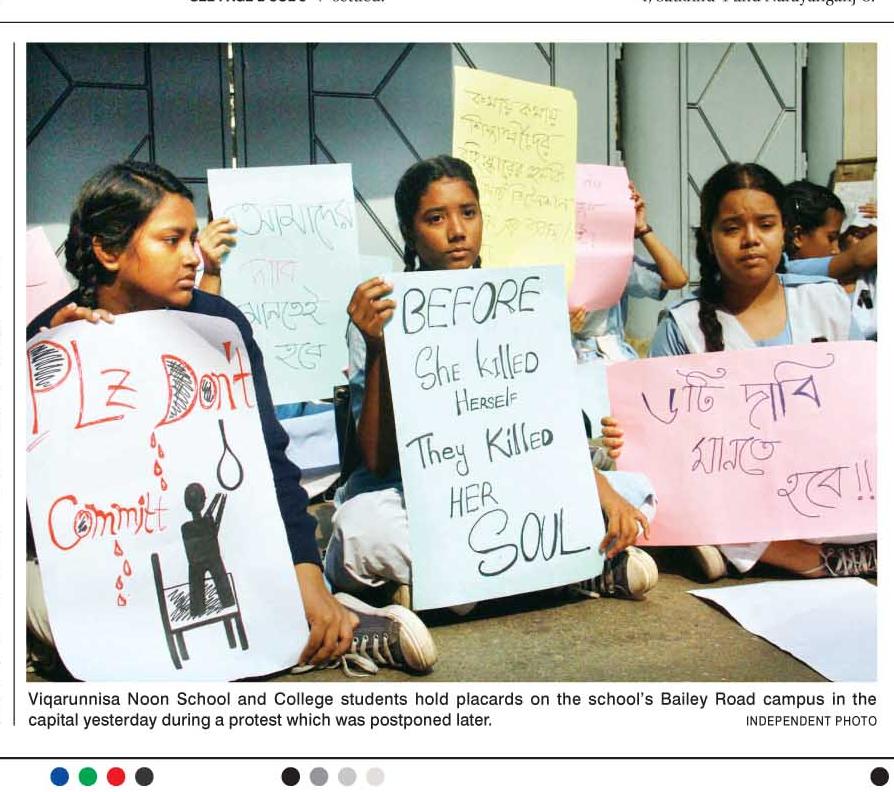 PLz Don't
Committ
আমাদের
দাবি
মানতেই
হবে
BEFORE
She killed
HERSELF
They Killed
HER
SOUL
কথায় কথায়
শিক্ষার্থীদের
৬টি দাবি
মানতে
হবে!!
Viqarunnisa Noon School and College students hold placards on the school's Bailey Road campus in the
capital yesterday during a protest which was postponed later.
INDEPENDENT PHOTO